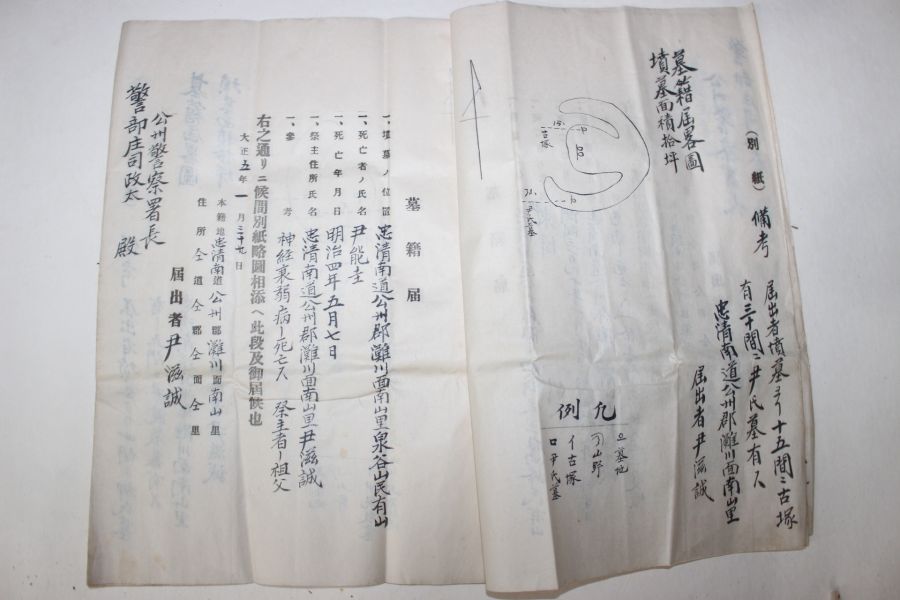 (別紙)
備考
届出者墳墓ヨリ十五間ニ古塚
有三十間ニ尹氏墓有ス
忠清南道公州郡灘川面南山里
届出者尹滋誠
墓籍届畧圖
墳墓面積拾坪
古塚
尹氏墓
凡例
墓地
山野
イ古塚
ロ尹氏墓
墓籍届
一、墳墓ノ位置 忠清南道公州郡灘川面南山里泉谷山民有山
一、死亡者ノ氏名 尹能圭
一、死亡年月日 明治四年五月七日
一、祭主住所氏名 忠清南道公州郡灘川面南山里尹滋誠
一、參考 神経衰弱病ニ死亡ス 祭主者ノ祖父
右之通リニ候間別紙略圖相添ヘ此段及御届候也
大正五年一月二十七日
本籍地忠清南道公州郡灘川面南山里
住所仝道仝郡仝面仝里
届出者尹滋誠
公州警察署長
警部庄司政太殿